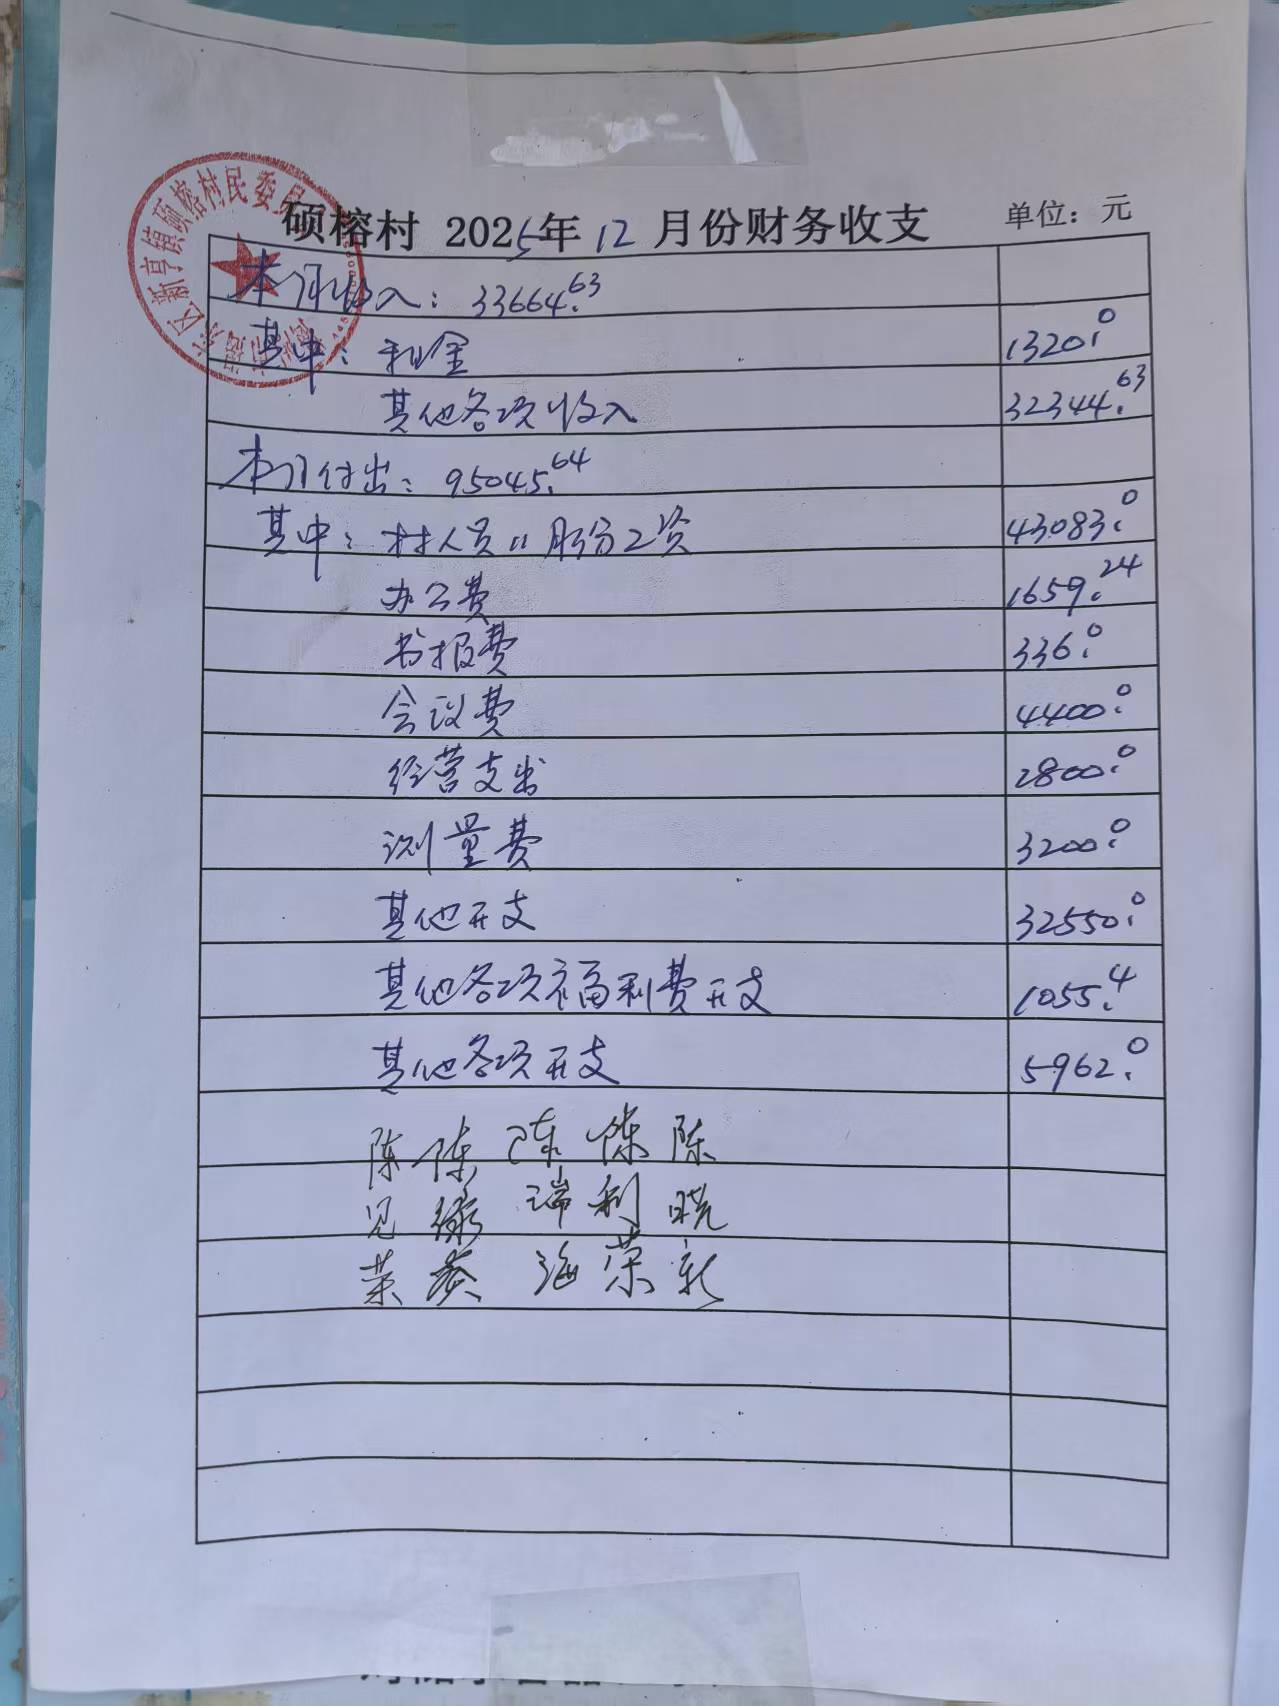 硕榕村 2025年12月份财务收支 单位：元
本月收入：33664.63
其中：租金 1320.0
其他各项收入 32344.63
本月付出：95045.64
其中：村人员11月份工资 43083.0
办公费 1659.24
书报费 336.0
会议费 4400.0
经营支出 2800.0
测量费 3200.0
其他开支 32550.0
其他各项福利费开支 1055.4
其他各项开支 5962.0
陈 陈 陈 陈 陈
见 瑞 利 晓
荣 海 荣 新
东区新亨镇硕榕村民委员